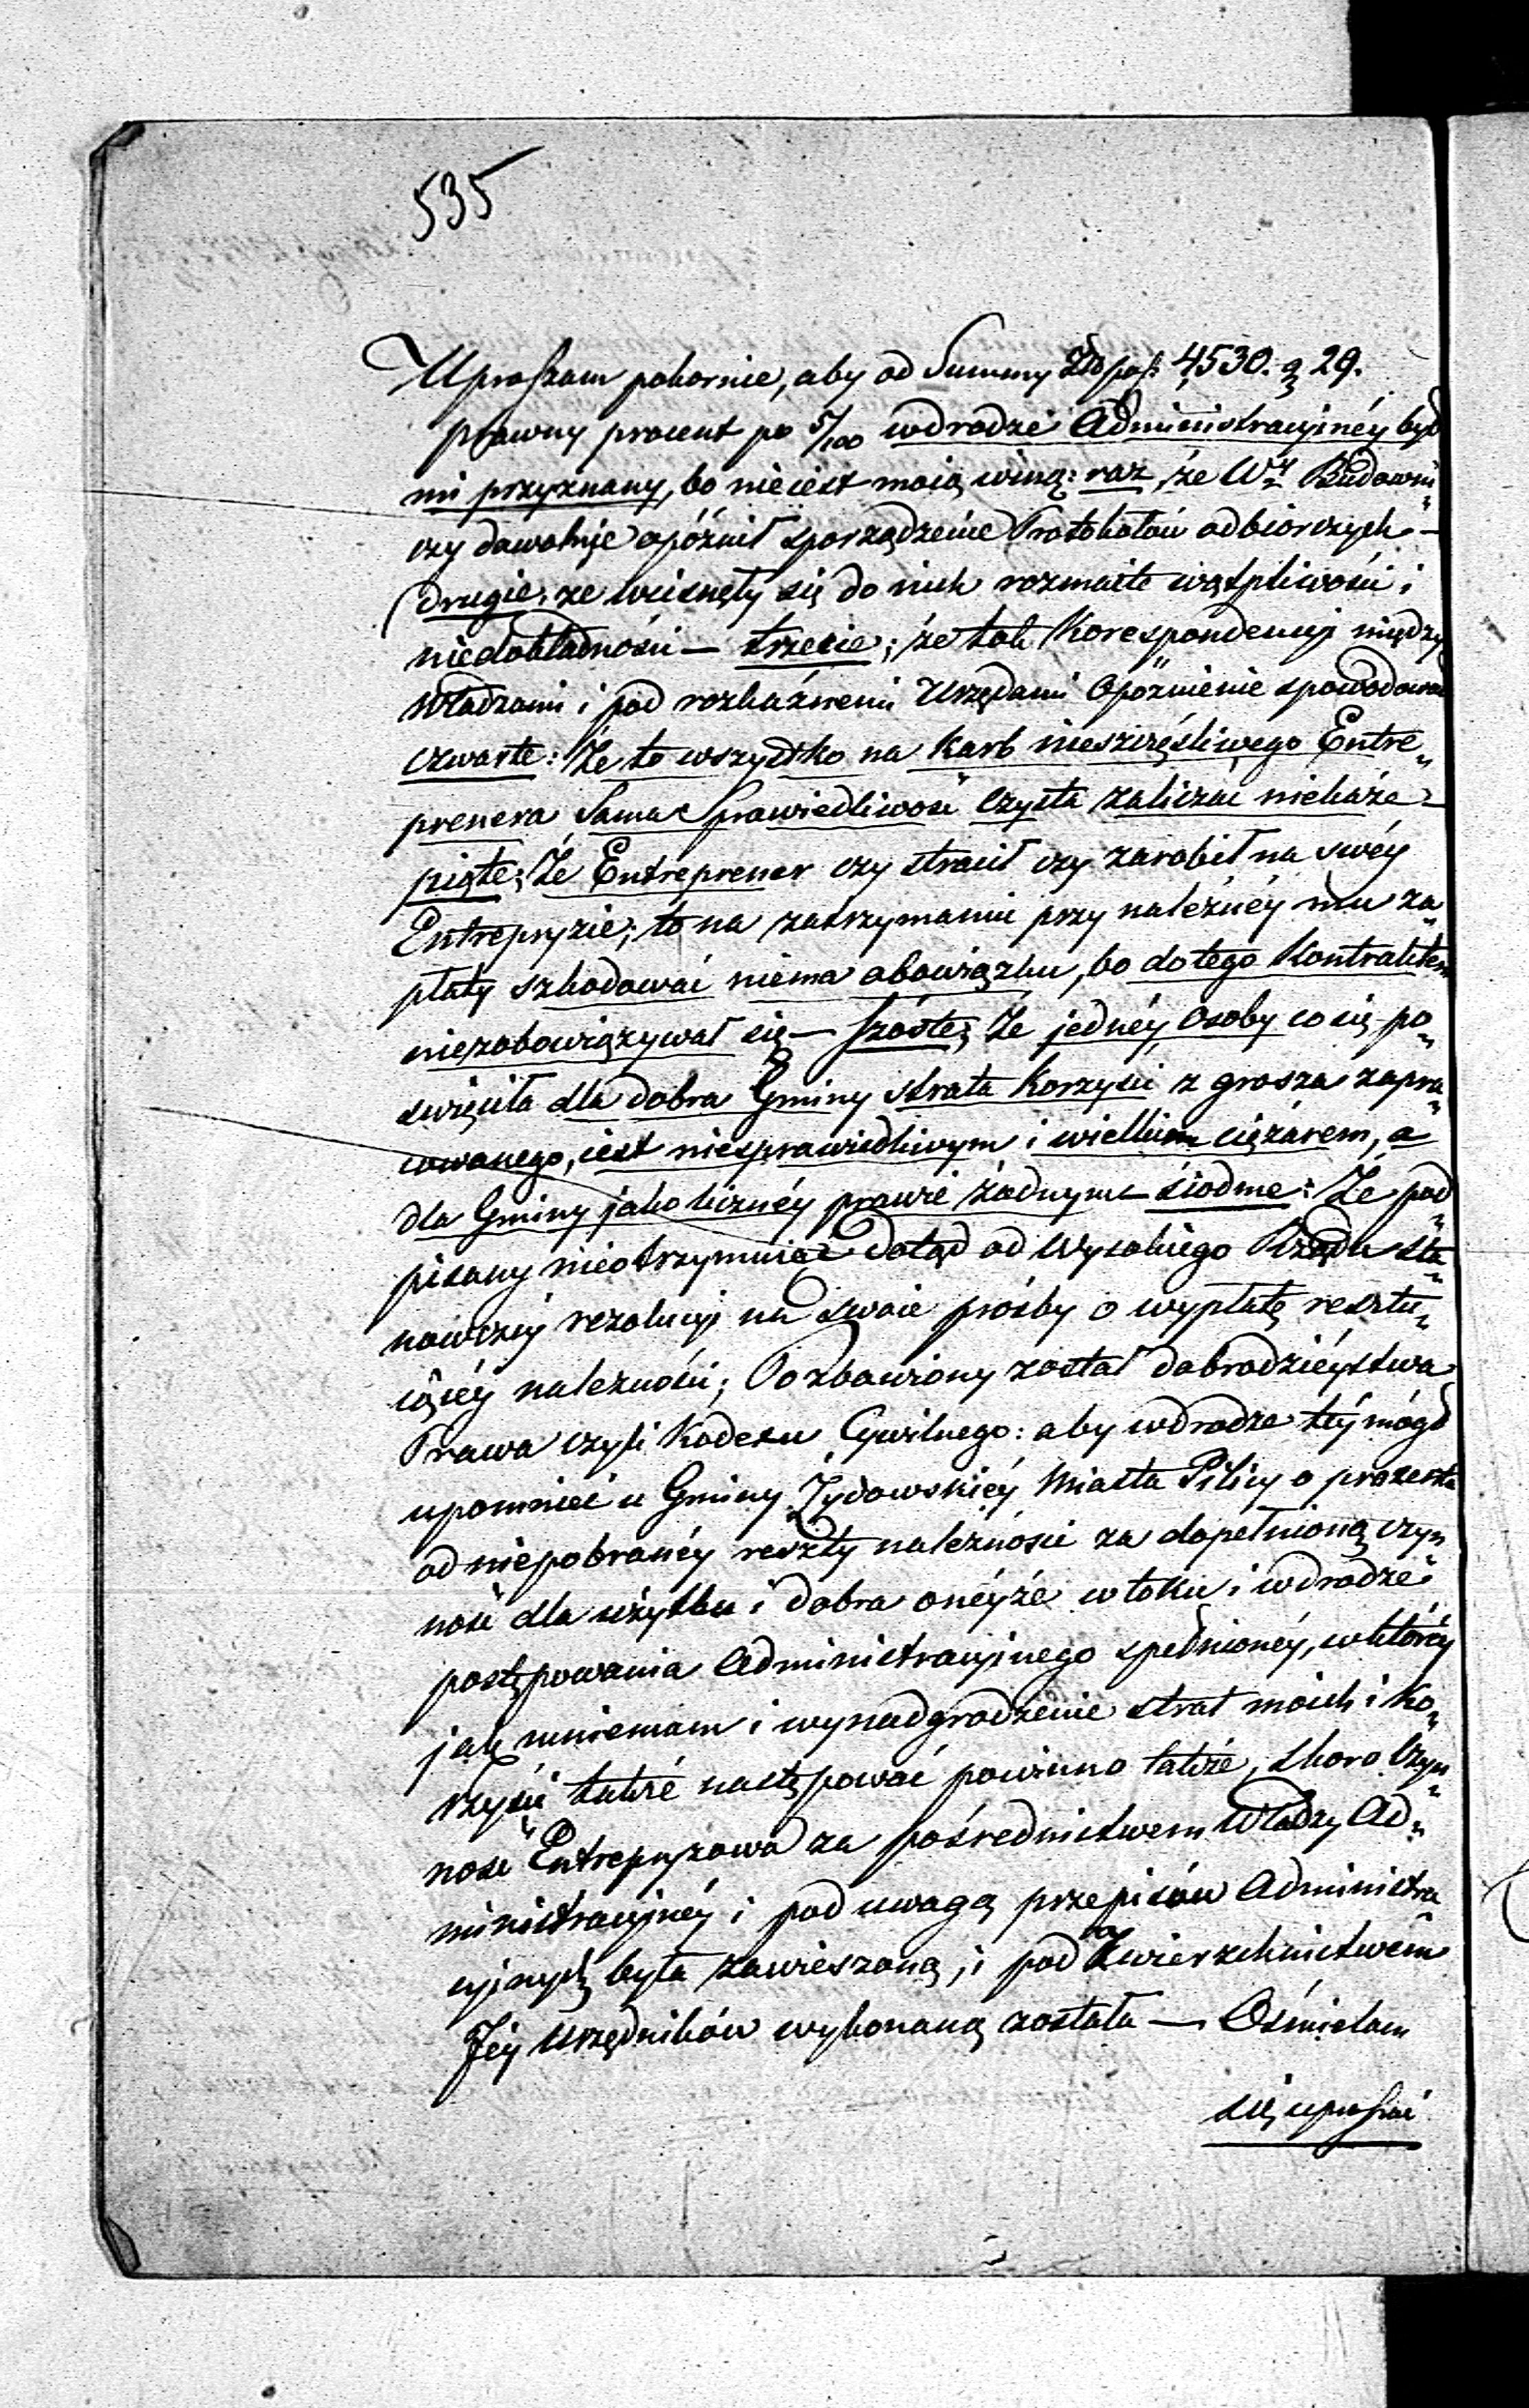 535
Upraszam pokornie, aby od Summy Złp 4530. g 29.
prawny procent po 5/100 wdrodze Administracyinéy był
mi przyznany, bo nieiest moią winą: raz, że Wy Budowni„
czy dowolnie opóźnił sporządzenie Protokołów odbiorczych –
drugie: że wcisnęły się do nich rozmaite wątpliwości i
niedokładności — trzecie; że tok Korespondencyi między
Władzami i pod rozkaźnemi Urzędami Opoźnienie spowodował
czwarte: Że to wszystko na karb nieszczęśliwego Entre„
prenera Sama Sprawiedliwość czysta zaliczać niekaże –
piąte: Że Entreprener czy stracił czy zarobił na swéy
Entrepryzie; to na zatrzymaniu przy należnéy mu za„
płaty szkodować niema obowiązku, bo dotego Kontraktem
niezobowiązywał się — szóste; Że jednéy Osoby co się po„
święciła dla dobra Gminy strata korzyści z grosza zapra„
cowanego, iest niesprawiedliwym i wielkiem ciężarem, a
dla Gminy jako licznéy prawie żadnym — siódme: Że pod„
pisany nieotrzymuiąc dotąd od Wysokiego Rządu sta„
nowczéy rezolucyi na swoie prośby o wypłatę resztu„
iącéy należności; Pozbawiony został dobrodzieystwa
Prawa czyli Kodexu Cywilnego: aby wdrodze téy mógł
upomnieć u Gminy Żydowskiéy Miasta Pilicy o procenta
od niepobranéy reszty należności za dopełnioną czyn„
ność dla użytku i dobra onéyże w toku i wdrodze
postępowania Administracyinego spełnionéy, w którey
jak mniemam i wynadgrodzenie strat moich i ko„
rzyści także następować powinno także, skoro czyn„
ność Entrepryzowa za pośrednictwem Władzy Ad„
ministracyinéy i pod uwagą przepisów Administra„
cyjnych była zawieszoną, i pod Zwierzchnictwem
Jéy Urzędników wykonaną została — Ośmielam
się uprosić